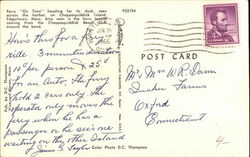 Ferry "On Time" heading for its dock, seen
across the harbor, on Chappaquiddick Island
Edgartown, Mass. Also seen is the ferry launch
coming from the Chappaquiddick Beach Club
around the bend.
P22194
How's this for a ferry
ride 3 minutes duration
10¢ per person & 25¢
for an auto. The ferry
hold 2 cars only. The
operator only moves the
ferry when he has a
passenger on he sees one
waiting on the other Island
James G. Taylor
Color Photo D.C. Thompson
POST CARD
Mr. & Mrs W. R. Dann
Quaker Farms
Oxford
Connecticut